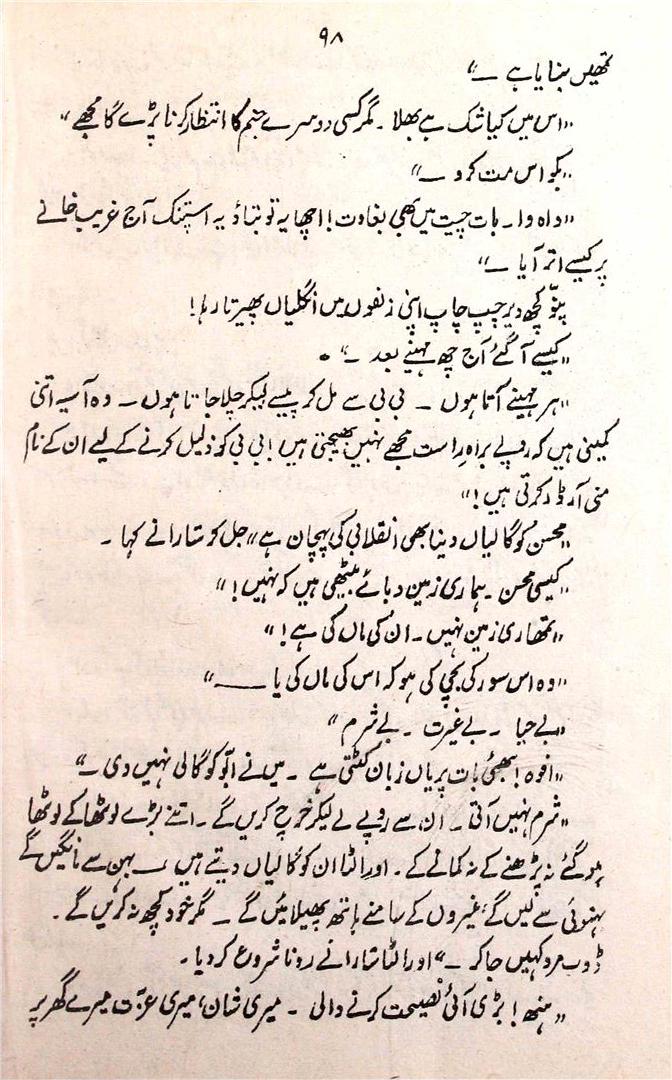 ۹۸
تمھیں بنایا ہے ـــ"
"اس میں کیا شک ہے بھلا۔ مگر کسی دوسرے جنم کا انتظار کرنا پڑے گا مجھے"
"بکو اس مت کرو ـــ"
"واہ وا۔ بات چیت میں بھی بغاوت! اچھا یہ تو بتاؤ یہ اسپتنک آج غریب خانے
پر کیسے اتر آیا ـــ"
بنّو کچھ دیر چپ چاپ اپنی زلفوں میں انگلیاں پھیرتا رہا!
"کیسے آ گئے آج چھ مہینے بعد ـــ"
"ہر مہینے آتا ہوں ـــ بی بی سے مل کر پیسے لیکر چلا جاتا ہوں ـــ وہ آسیہ اتنی
کمینی ہیں کہ روپے براہِ راست مجھے نہیں بھیجتی ہیں! بی بی کو ذلیل کرنے کے لیے ان کے نام
منی آرڈر کرتی ہیں!"
"محسن کو گالیاں دینا بھی انقلابی کی پہچان ہے" جل کر شارا نے کہا۔
"کیسی محسن۔ ہماری زمین دبائے بیٹھی ہیں کہ نہیں!"
"تمھاری زمین نہیں۔ ان کی ماں کی ہے!"
"وہ اس سور کی بچی کی ہو کہ اس کی ماں کی یا ـــــ"
"بے حیا ۔ بے غیرت ۔ بے شرم"
"افوہ! بھئی بات پر یاں زبان کٹتی ہے ۔ میں نے ابّو کو گالی نہیں دی ـــ"
"شرم نہیں آتی۔ ان سے روپے لے لیکر خرچ کریں گے۔ اتنے بڑے لوٹھا کے لوٹھا
ہو گئے نہ پڑھنے کے نہ کمانے کے۔ اور الٹا ان کو گالیاں دیتے ہیں ـــ بہن سے مانگیں گے
بہنوئی سے لیں گے، غیروں کے سامنے ہاتھ پھیلائیں گے ـــ مگر خود کچھ نہ کریں گے۔
ڈوب مرو کہیں جا کر ـــ" اور الٹا شارا نے رونا شروع کر دیا۔
"ہنھ! بڑی آئی نصیحت کرنے والی ۔ میری شان، میری عزّت میرے گھر پر